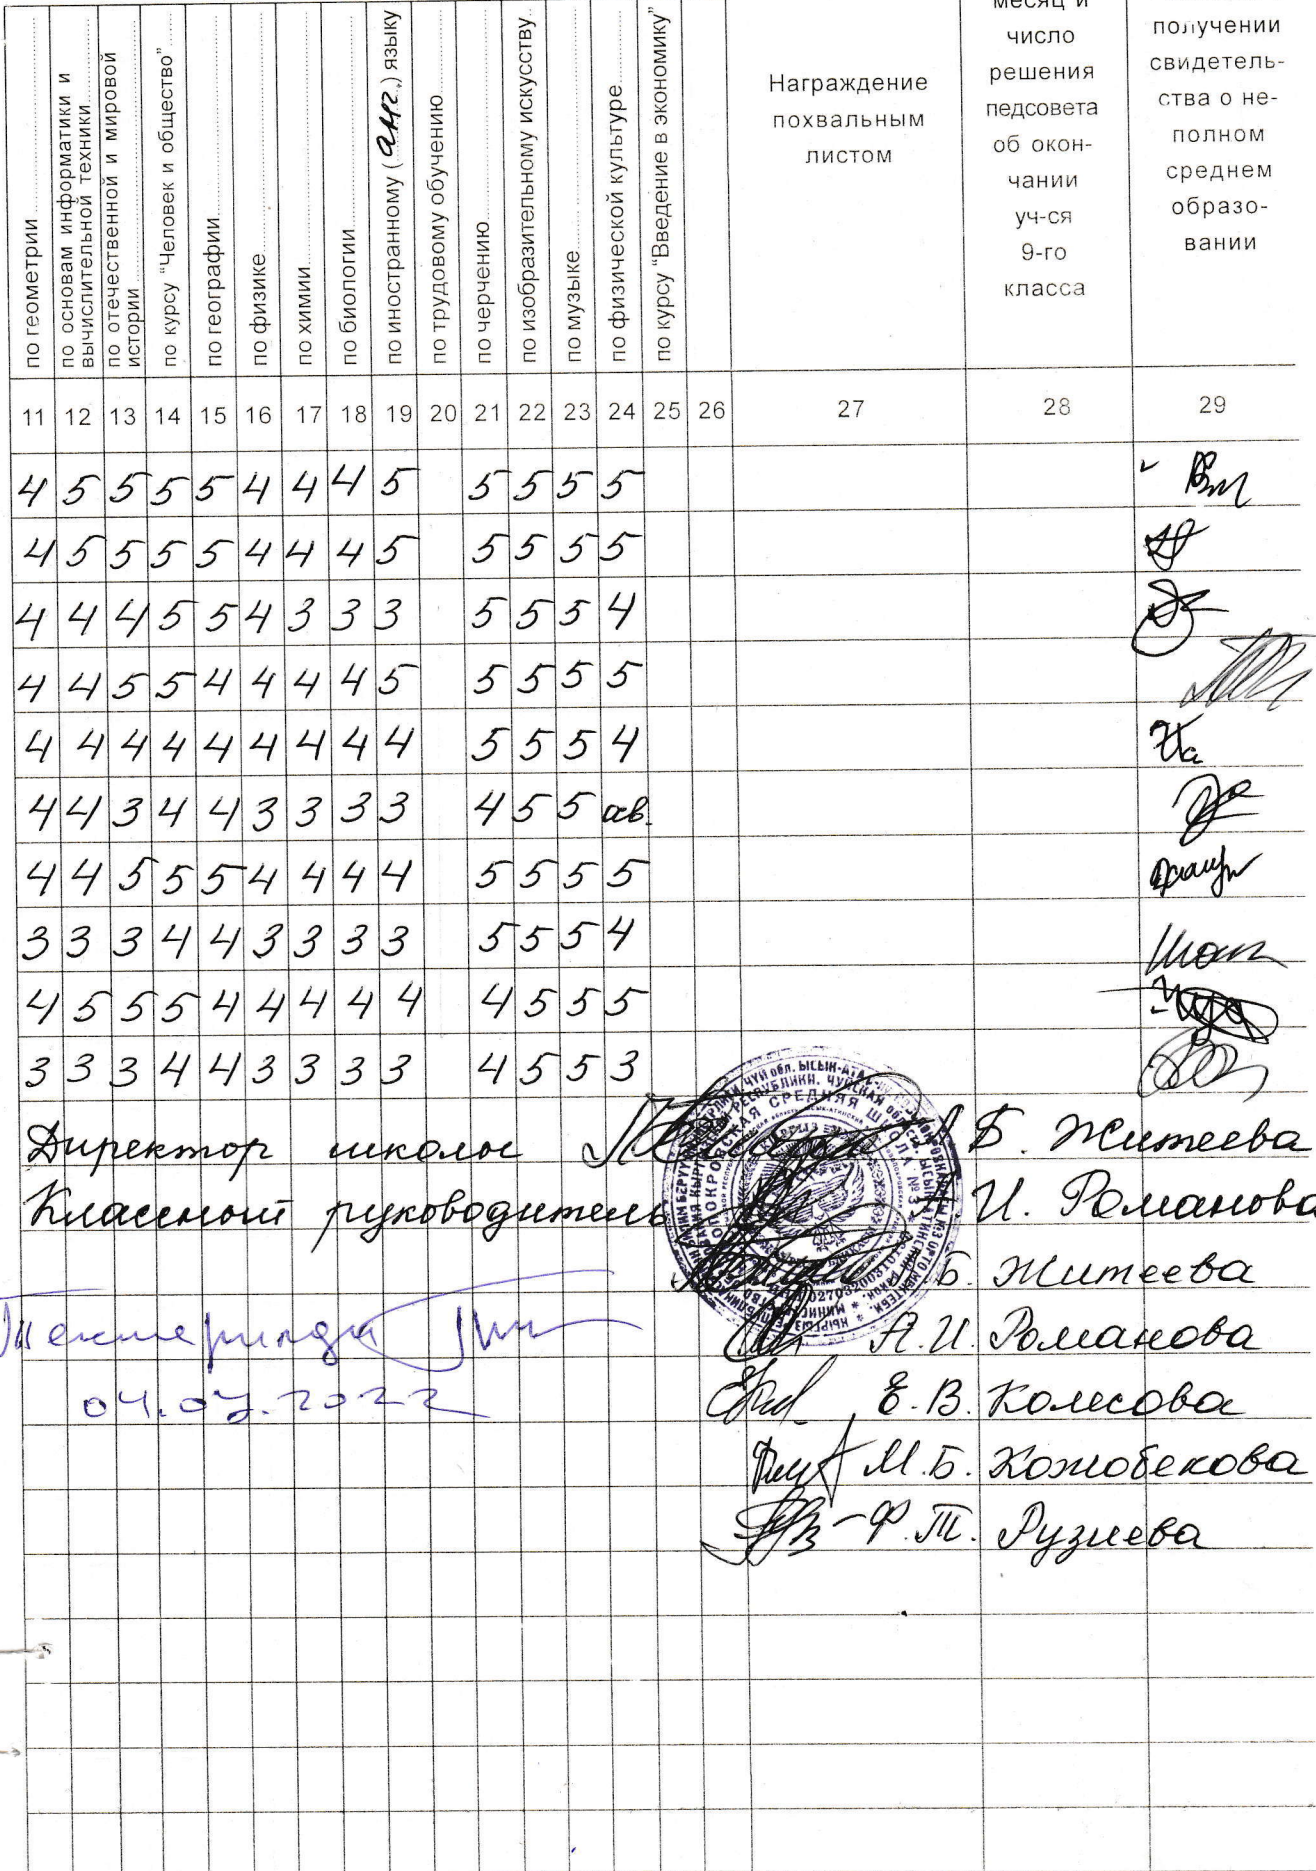 по геометрии
по основам информатики и
вычислительной техники
по отечественной и мировой
истории
по курсу "Человек и общество"
по географии
по физике
по химии
по биологии
по иностранному (анг.) языку
по трудовому обучению
по черчению
по изобразительному искусству
по музыке
по физической культуре
по курсу "Введение в экономику"
Награждение
похвальным
листом
месяц и
число
решения
педсовета
об окон-
чании
уч-ся
9-го
класса
получении
свидетель-
ства о не-
полном
среднем
образо-
вании
11 12 13 14 15 16 17 18 19 20 21 22 23 24 25 26 27 28 29
4 5 5 5 5 4 4 4 5 5 5 5 5
4 5 5 5 5 4 4 4 5 5 5 5 5
4 4 4 5 5 4 3 3 3 5 5 5 4
4 4 5 5 4 4 4 4 5 5 5 5 5
4 4 4 4 4 4 4 4 4 5 5 5 4
4 4 3 4 4 3 3 3 3 4 5 5 ов.
4 4 5 5 5 4 4 4 4 5 5 5 5
3 3 3 4 4 3 3 3 3 5 5 5 4
4 5 5 5 4 4 4 4 4 4 5 5 5
3 3 3 4 4 3 3 3 3 4 5 5 3
Директор школы Б. Житеева
Классный руководитель И. Романова
Б. Житеева
А.И. Романова
Текшерилди
04.07.2022
Е.В. Колесова
М.Б. Кожобекова
Ф.Т. Рузиева
СРЕДНЯЯ ШКОЛА №3